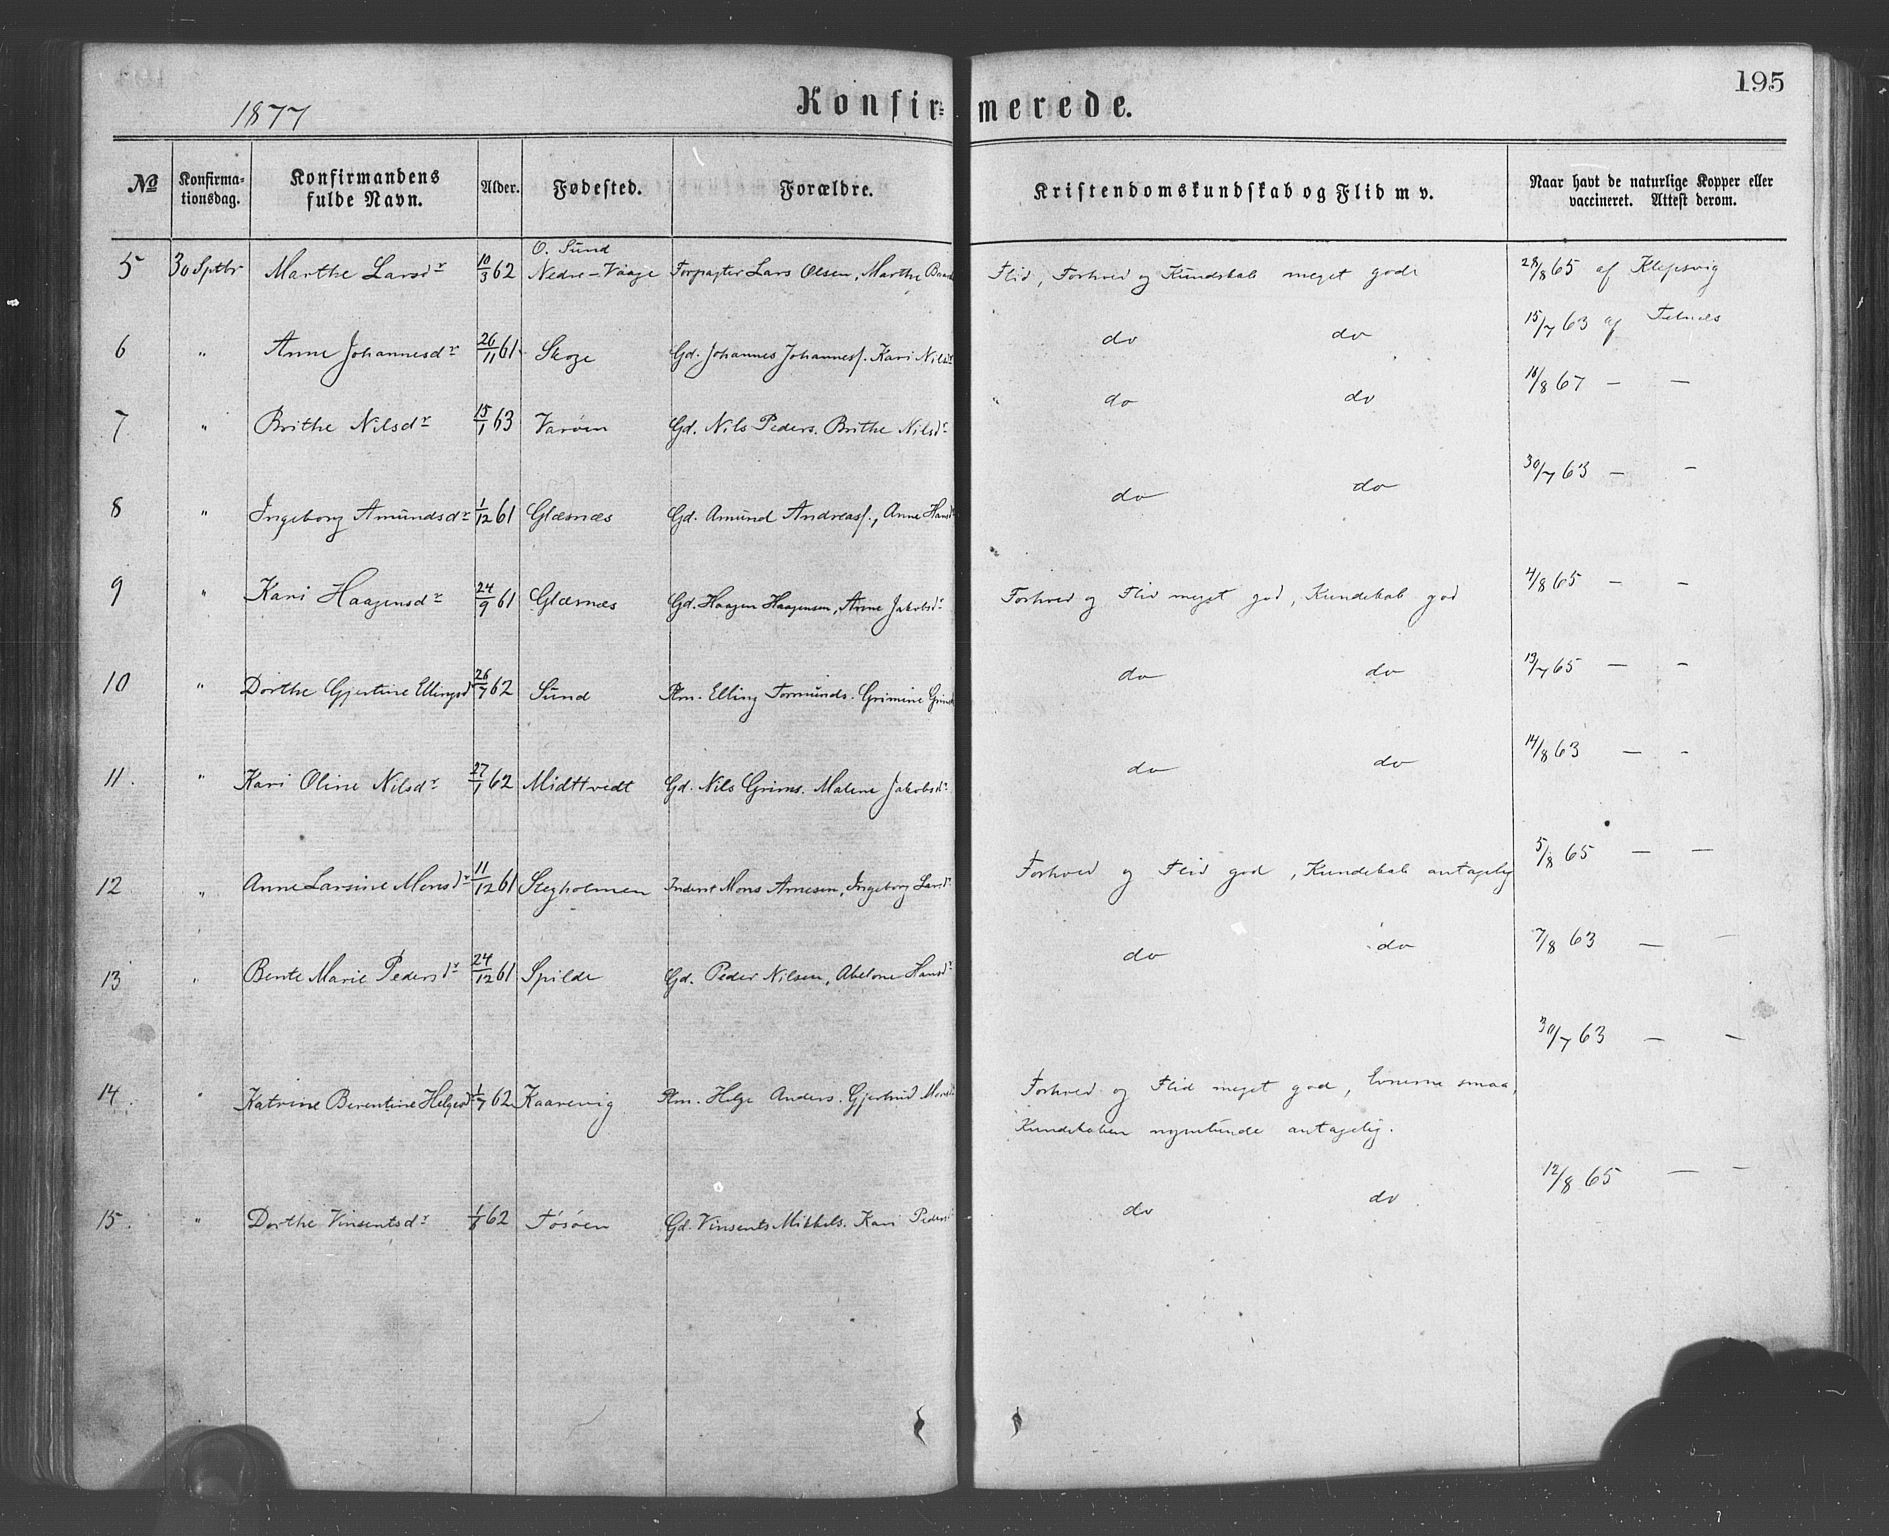 195
1877
Konfir= merede.
No Konfirma-tionsdag. Konfirmandens fulde Navn. Alder. Fødested. Forældre. Kristendomskundskab og Flid m v. Naar havt de naturlige Kopper eller vaccineret. Attest derom.
O. Sund
5 30 Sptbr Marthe Larsdr 10/3 62 Nedre-Vaage Forpagter Lars Olsen, Marthe Flid, Forhold og Kundskab meget gode 28/8 65 af Klepsvig
6 " Anne Johannesdr 26/11 61 Skoge Gd. Johannes Johannesf. Kari do do 15/7 63 af
7 " Brithe Nilsdr 15/1 63 Varøen Gd. Nils Peders. Brithe Nilsdr do do 16/8 67 — —
8 " Ingeborg Amundsdr 1/12 61 Glæsnæs Gd. Amund Andreasf., Anne Hansdr do do 30/7 63 — —
9 " Kari Haagensdr 24/9 61 Glæsnæs Gd. Haagen Haagensen, Anne Jakobsdr Forhold og Flid meget god, Kundskab god 4/8 65 — —
10 " Dorthe Gjertine Ellingsd 26/7 62 Sund Plm. Elling Tormunds. Grimine do do 13/7 65 — —
11. " Kari Oline Nilsdr 27/1 62 Midttvedt Gd. Nils Grims. Malene Jakobsdr do do 14/8 63 — —
12 " Anne Larsine Monsdr 11/12 61 Stegholmen Inderst Mons Arnesen, Ingeborg Larsdr Forhold og Flid god, Kundskab antagelig 5/8 65 — —
13 " Bente Marie Pedersdr 24/12 61 Spilde Gd. Peder Nilsen, Abelone Hansdr do do 7/8 63 — —
14. " Katrine Berentine Helgesdr 1/7 62 Kaarevig Plm. Helge Anders. Gjertrud Monsdr Forhold og Flid meget god, Evnerne smaa, 30/7 63 — —
Kundskaben nymlunde antagelig.
15. " Dorthe Vinsentsdr 1/8 62 Tøsøen Gd. Vinsents Mikkels. Kari Pedersd do do 12/8 65 — —